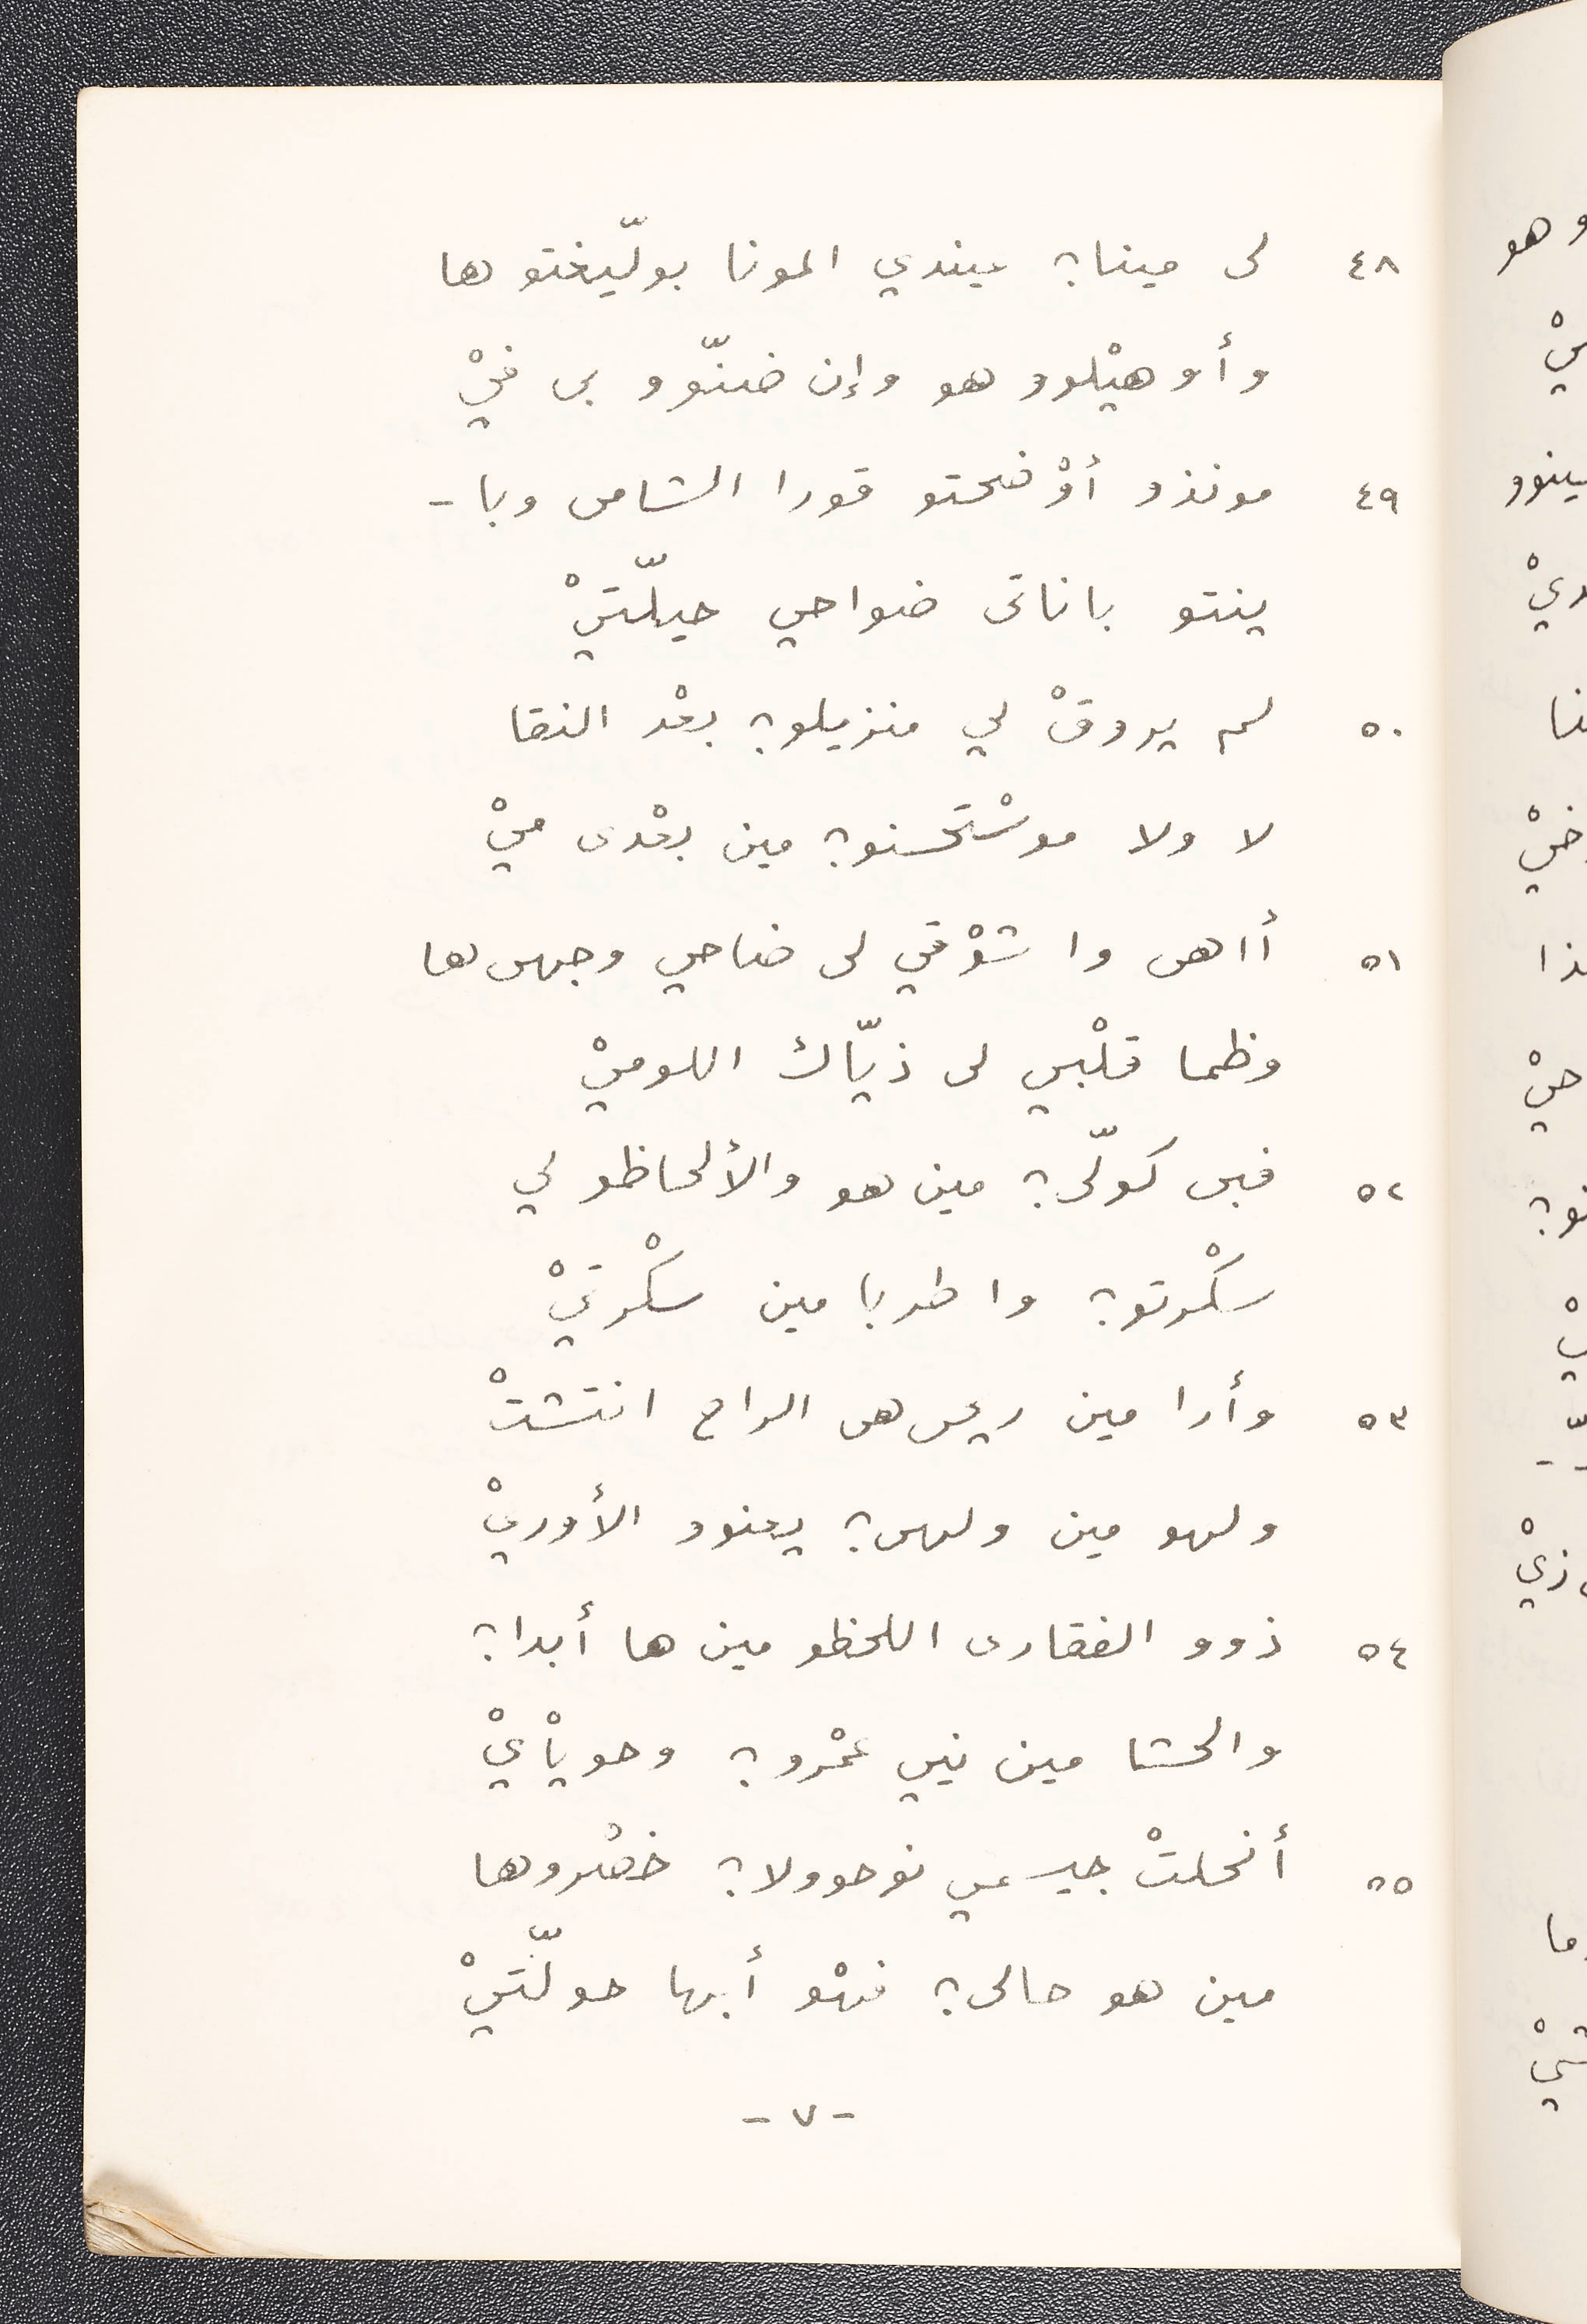 ٤٨ لى مينا؟ عيندي المونا بولّيغتو ها
وأو هيْلوو هو وإن ضننّوو بى فيْ
٤٩ مونذو أوْضحتو قورا الشامى وبا -
ينتو باناتى ضواحي حيلّتيْ
٥٠ لم يروقْ لي منزيلو؟ بعْد النقا
لا ولا موسْتحسنو؟ مين بعْدى ميْ
٥١ أاهى وا شوْقي لى ضاحي وجهى ها
وظما قلْبي لى ذيّاك اللوميْ
٥٢ فبى كولّى؟ مين هو والألحاظو لي
سكْرتو؟ وا طربا مين سكْرتيْ
٥٣ وأرا مين ريحى هى الراح انتشتْ
ولهو مين ولهى؟ يعنوو الأوريْ
٥٤ ذوو الفقارى اللحظو مين ها أبدا؟
والحشا مين نيي عمْرو؟ وحويأْيْ
٥٥ أنحلتْ جيسمي نوحوولا؟ خصْروها
مين هو حالى؟ فهْو أبها حولّتيْ
- ٧ -